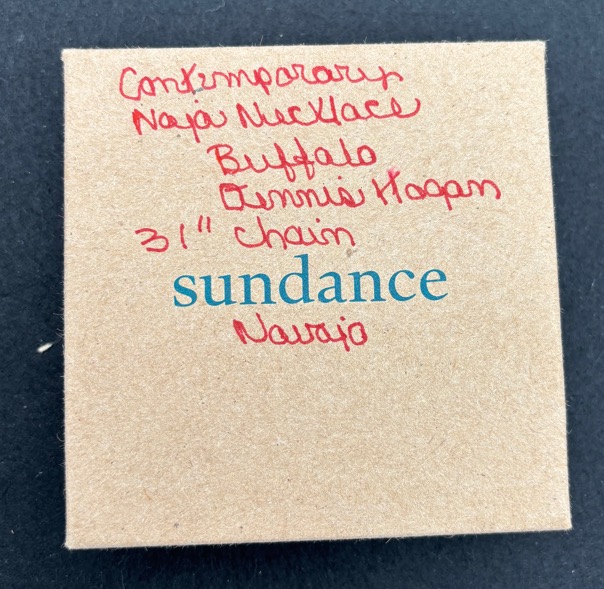 Contemporary
Naja Necklace
Buffalo
Dennis Hogan
31" chain
sundance
Navajo